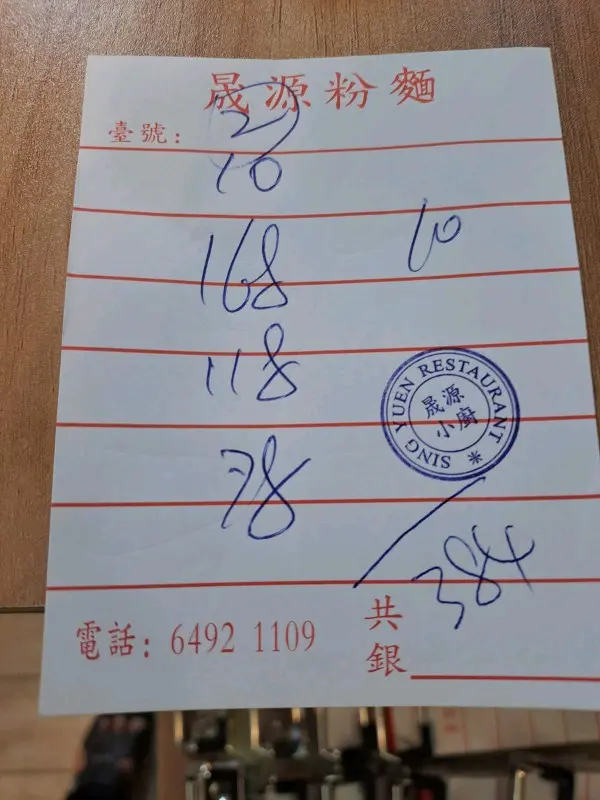 晟源粉麵
臺號： 2
10
168 10
118
SING YUEN RESTAURANT *
晟源
小廚
78
384
電話：6492 1109
共
銀